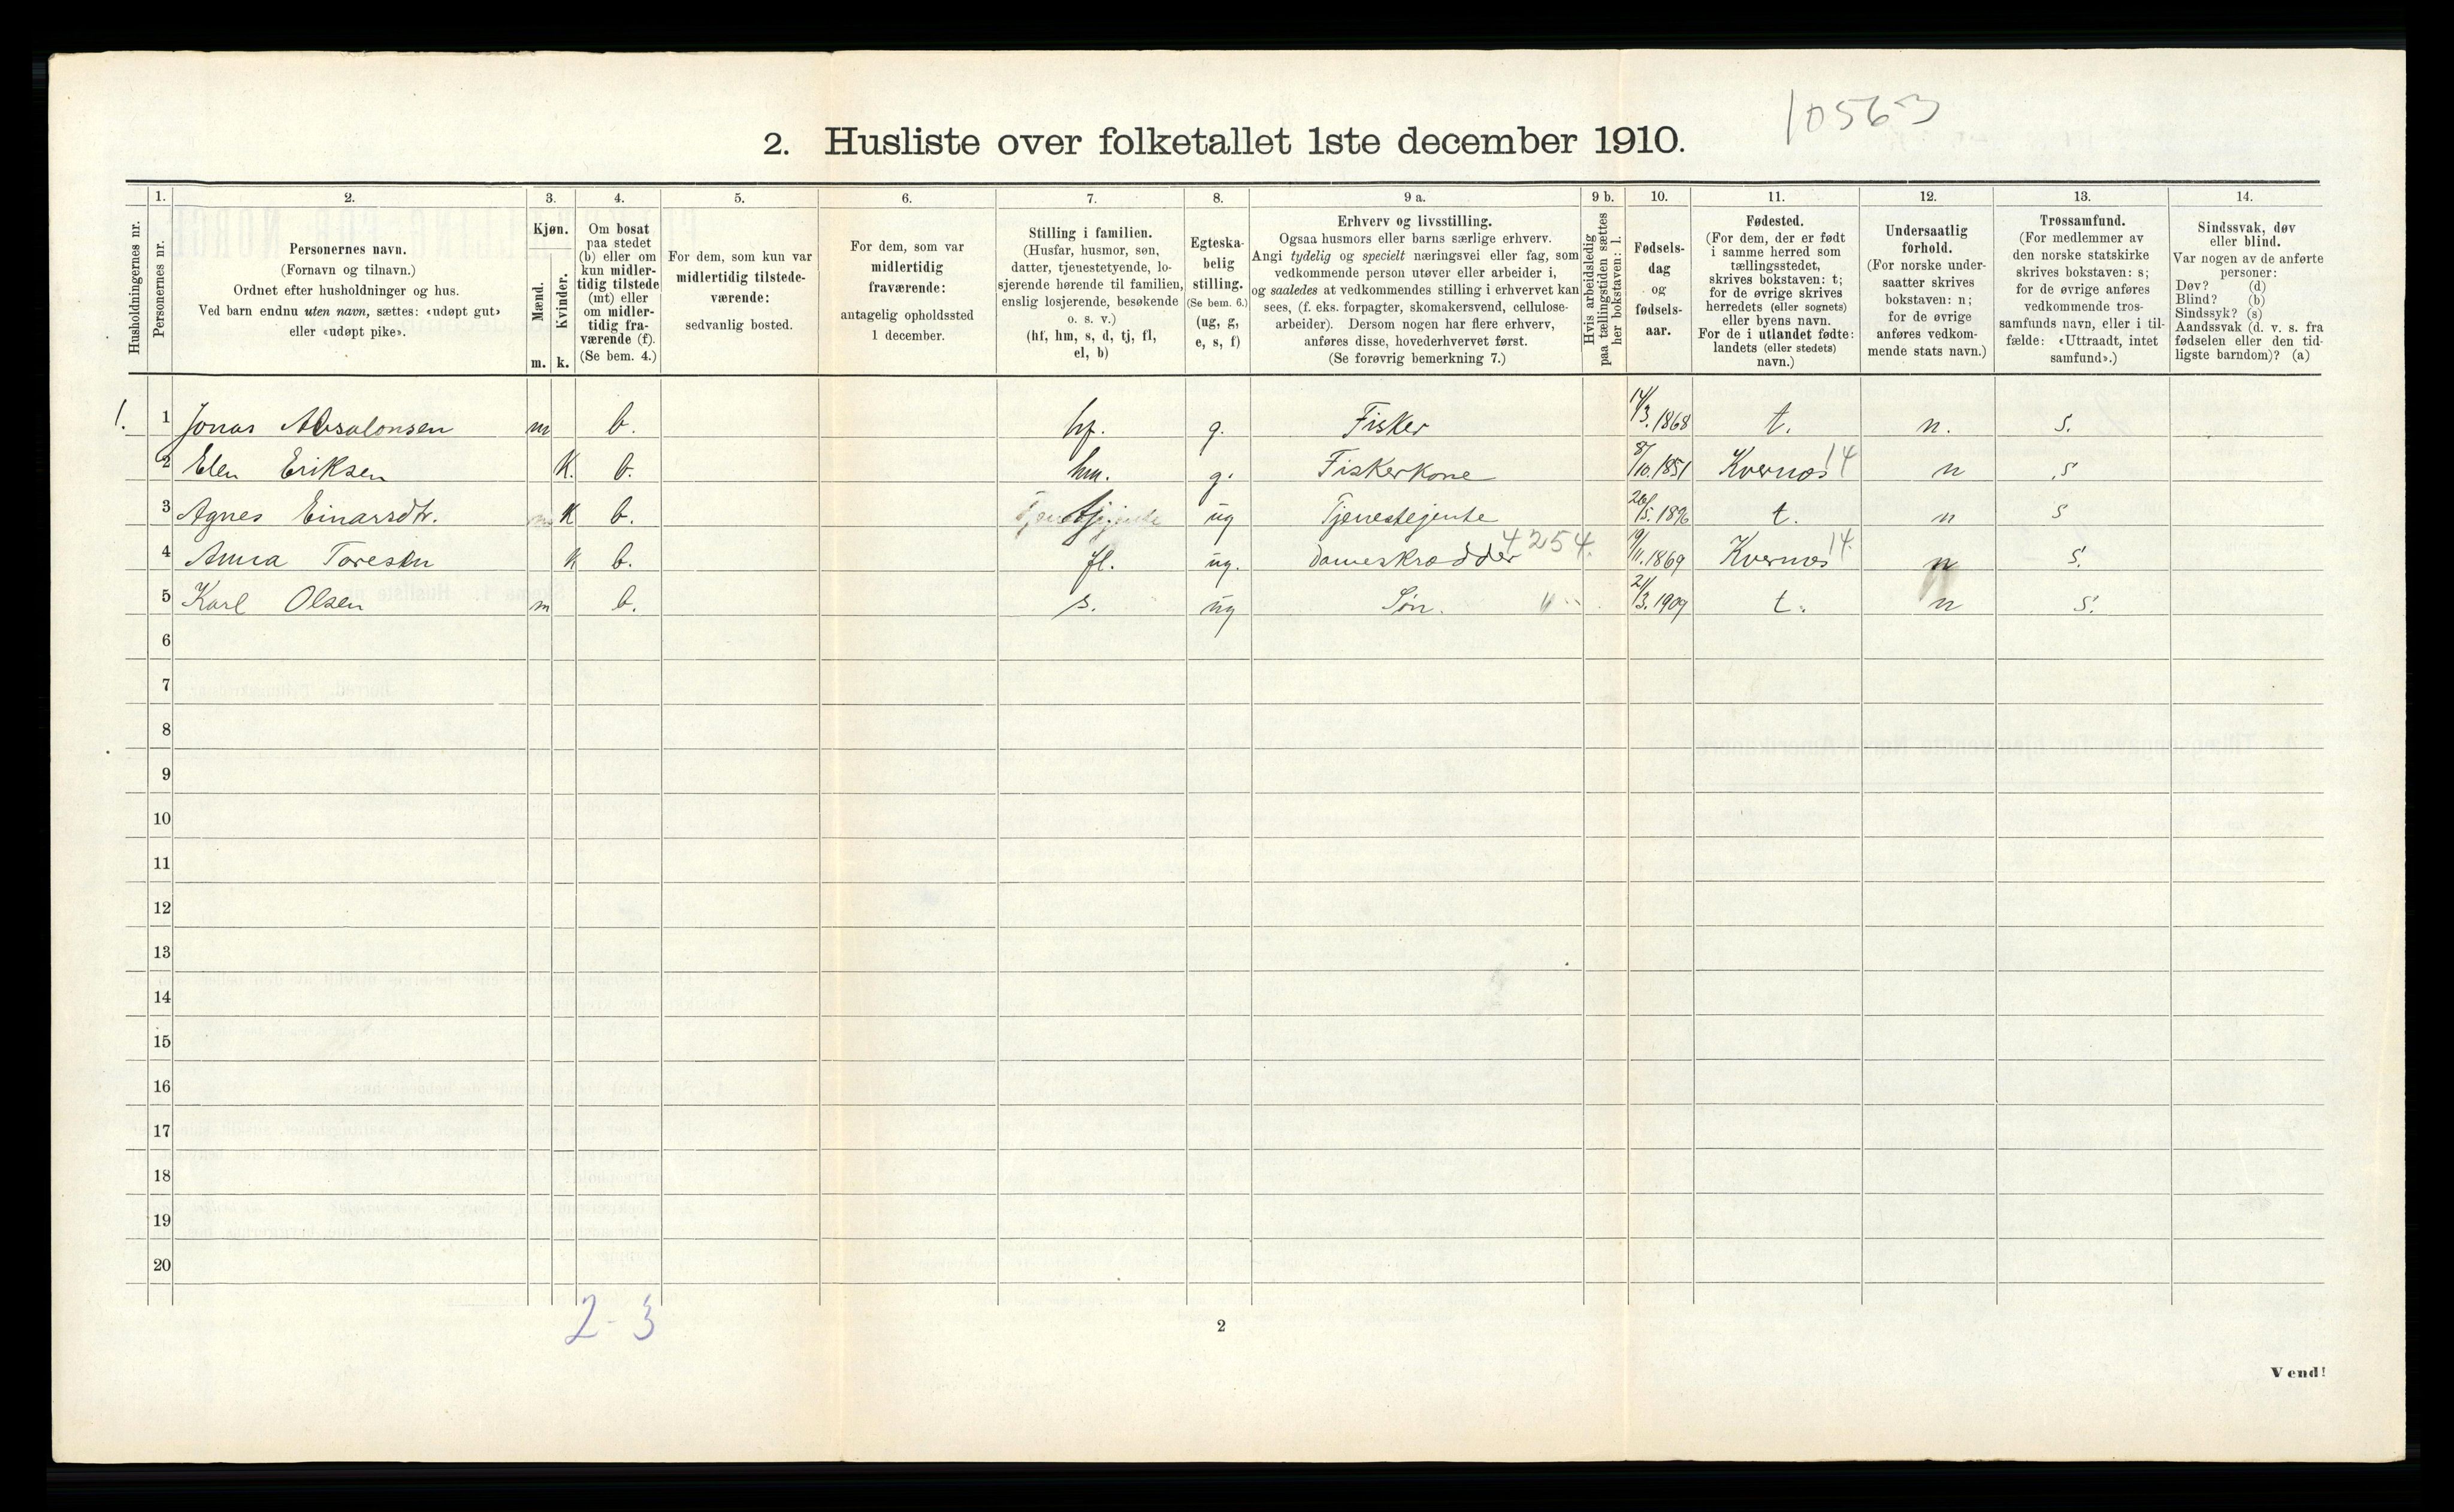 10563
2. Husliste over folketallet 1ste december 1910.
Husholdningernes nr.
1.
Personernes nr.
2.
Personernes navn.
(Fornavn og tilnavn.)
Ordnet efter husholdninger og hus.
Ved barn endnu uten navn, sættes: «udøpt gut»
eller «udøpt pike».
3.
Kjøn.
Mænd.
Kvinder.
m. k.
4.
Om bosat
paa stedet
(b) eller om
kun midler-
tidig tilstede
(mt) eller
om midler-
tidig fra-
værende (f).
(Se bem. 4.)
5.
For dem, som kun var
midlertidig tilstede-
værende:
sedvanlig bosted.
6.
For dem, som var
midlertidig
fraværende:
antagelig opholdssted
1 december.
7.
Stilling i familien.
(Husfar, husmor, søn,
datter, tjenestetyende, lo-
sjerende hørende til familien,
enslig losjerende, besøkende
o. s. v.)
(hf, hm, s, d, tj, fl,
el, b)
8.
Egteska-
belig
stilling.
(Se bem. 6.)
(ug, g,
e, s, f)
9 a.
Erhverv og livsstilling.
Ogsaa husmors eller barns særlige erhverv.
Angi tydelig og specielt næringsvei eller fag, som
vedkommende person utøver eller arbeider i,
og saaledes at vedkommendes stilling i erhvervet kan
sees, (f. eks. forpagter, skomakersvend, cellulose-
arbeider). Dersom nogen har flere erhverv,
anføres disse, hovederhvervet først.
(Se forøvrig bemerkning 7.)
9 b.
Hvis arbeidsledig
paa tællingstiden sættes
her bokstaven: l.
10.
Fødsels-
dag
og
fødsels-
aar.
11.
Fødested.
(For dem, der er født
i samme herred som
tællingsstedet,
skrives bokstaven: t;
for de øvrige skrives
herredets (eller sognets)
eller byens navn.
For de i utlandet fødte:
landets (eller stedets)
navn.)
12.
Undersaatlig
forhold.
(For norske under-
saatter skrives
bokstaven: n;
for de øvrige
anføres vedkom-
mende stats navn.)
13.
Trossamfund.
(For medlemmer av
den norske statskirke
skrives bokstaven: s;
for de øvrige anføres
vedkommende tros-
samfunds navn, eller i til-
fælde: «Uttraadt, intet
samfund».)
14.
Sindssvak, døv
eller blind.
Var nogen av de anførte
personer:
Døv? (d)
Blind? (b)
Sindssyk? (s)
Aandssvak (d. v. s. fra
fødselen eller den tid-
ligste barndom)? (a)
1. 1 Jonas Absalonsen m b. hf. g. Fisker 14/3. 1868 t. n. s.
2 Elen Eriksen K. b. hm. g. Fiskerkone 8/10. 1851 Kvernæs 14 n s
3 Agnes Einarsdtr. K b. tj. ug Tjenestejente 26/5. 1896 t. n s
4 Anna Toresen k b. fl. ug. Dameskrædder 4254. 19/11. 1869 Kvernæs 14. n s.
5 Karl Olsen m b. s. ug Søn. 21/3. 1909 t. n s.
6
7
8
9
10
11
12
13
14
15
16
17
18
19
20
2 - 3
2
Vend!